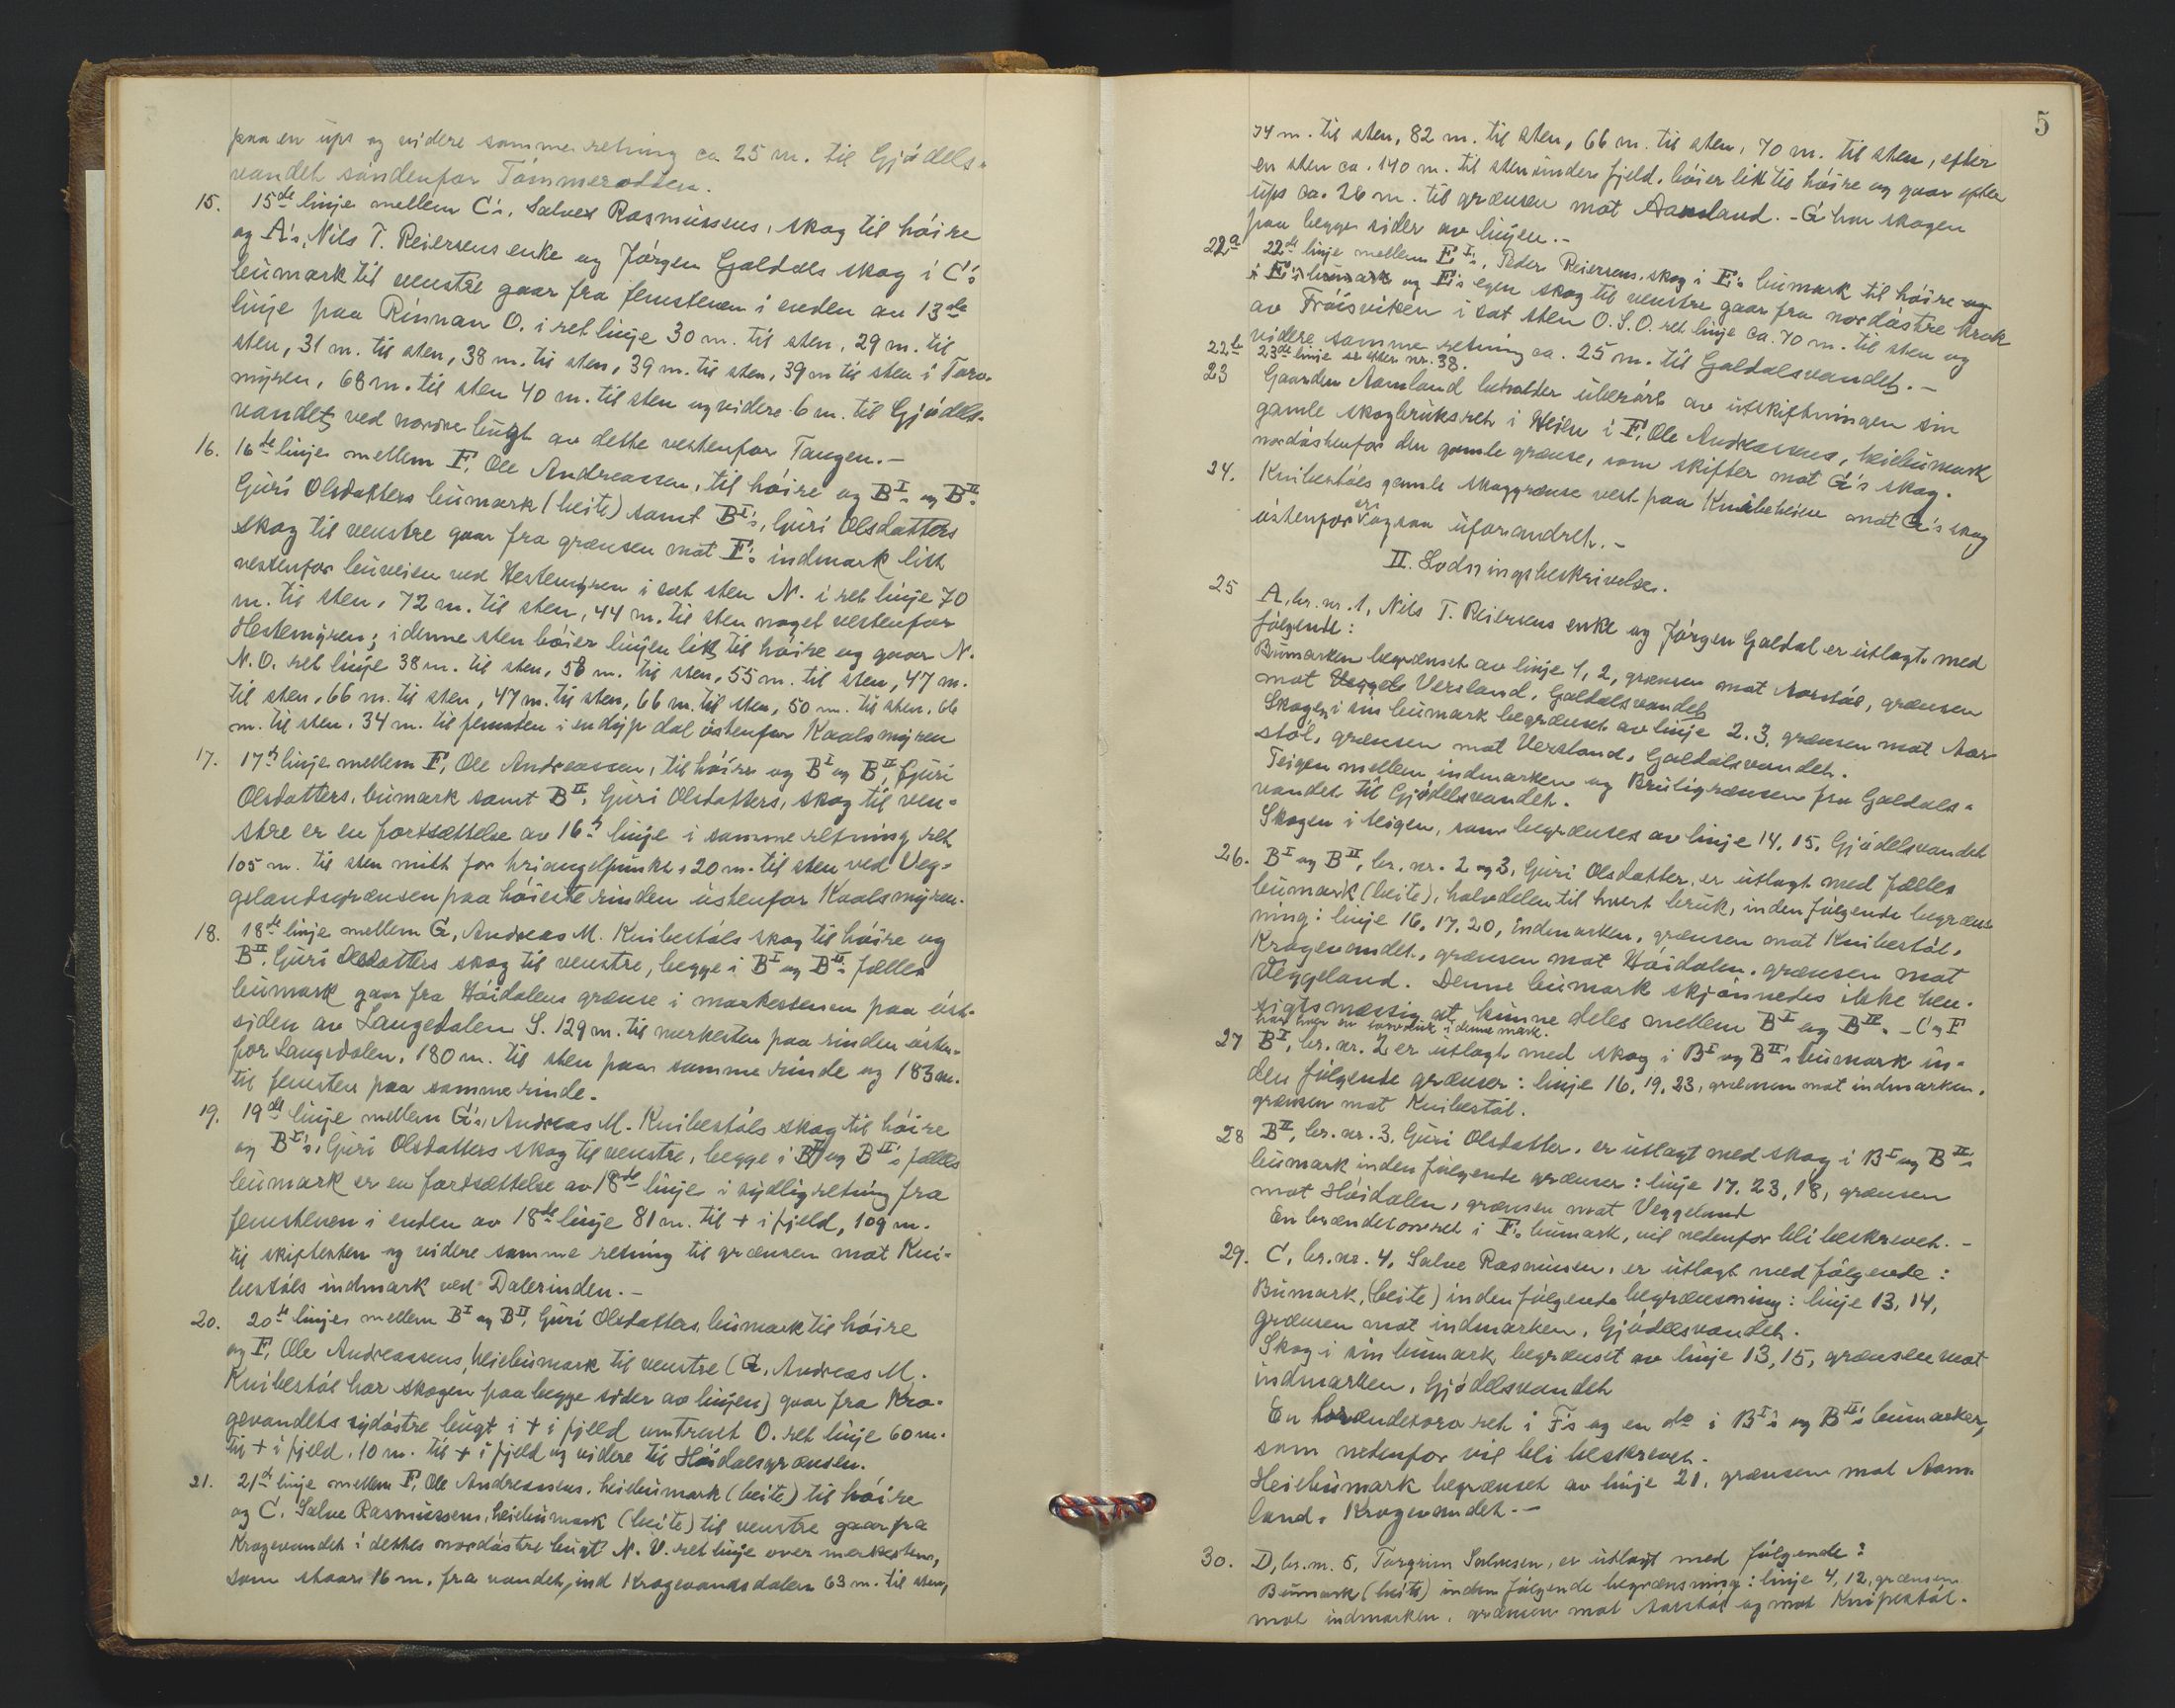 paa en ups og videre samme retning ca 25 m. til Gjødels-
vandet søndenfor Tømmerodden.
15. 15de linje mellem C's, Salve Rasmussens, skog til høire
og A's, Nils T. Reiersens enke og Jørgen Galdals skog i C's
bumark til venstre gaar fra femstenen i enden av 13de
linje paa Rinnan O. i ret linje 30 m. til sten, 29 m. til
sten, 31 m. til sten, 38 m. til sten, 39 m. til sten, 39 m til sten i Torv-
myren, 68 m. til sten 40 m. til sten og videre 6 m. til Gjødels-
vandet ved nordre bugt av dette vestenfor Tangen.-
16. 16de linje mellem F, Ole Andreassen, til høire og BI's og BII's
Guri Olsdatters bumark (beite) samt BI's, Guri Olsdatters
skog til venstre gaar fra grænsen mot F's indmark litt
vestenfor buveien ved Hestemyren i sat sten N. i ret linje 70
m. til sten, 72 m. til sten, 44 m. til sten noget vestenfor
Hestemyren; i denne sten bøier linjen litt til høire og gaar N.
N.O. ret linje 38 m. til sten, 58 m. til sten, 55 m. til sten, 47 m.
til sten, 66 m. til sten, 47 m. til sten, 66 m. til sten, 50 m. til sten, 66
m. til sten, 34 m. til femsten i en dyp dal østenfor Kaalsmyren
17. 17de linje mellem F, Ole Andreassen, til høire og BI og BII, Guri
Olsdatters, bumark samt BII, Guri Olsdatters, skog til ven-
stre er en fortsættelse av 16de linje i samme retning ret
105 m. til sten mitt for triangelpunkt, 20 m. til sten ved Veg-
gelandsgrænsen paa høieste rinden østenfor Kaalsmyren.
18. 18de linje mellem G, Andreas M. Knibestøls skog til høire og
BII, Guri Olsdatters skog til venstre, begge i BI og BII's fælles
bumark gaar fra Høidalens grænse i merkestenen paa øst-
siden av Langedalen S. 129 m. til merkesten paa rinden østen-
for Langedalen, 180 m. til sten paa samme rinde og 183 m.
til femsten paa samme rinde.
19. 19de linje mellem G's, Andreas M. Knibestøls skog til høire
og BI's, Guri Olsdatters skog til venstre, begge i BI og BII's fælles
bumark er en fortsættelse av 18de linje i sydlig retning fra
femstenen i enden av 18de linje 81 m. til + i fjeld, 109 m.
til skiftesten og videre samme retning til grænsen mot Kni-
bestøls indmark ved Dalerinden.-
20. 20de linje mellem BI og BII, Guri Olsdatters bumark til høire
og F, Ole Andreassens, heiebumark til venstre (G, Andreas M.
Knibestøl har skogen paa begge sider av linjen) gaar fra Kro-
gevandets sydøstre bugt i + i fjeld omtrent O. ret linje 60 m.
til + i fjeld, 10 m. til + i fjeld og videre til Høidalsgrænsen.
21. 21de linje mellem F, Ole Andreassens, heiebumark (beite) til høire
og C, Salve Rasmussens, heiebumark (beite) til venstre gaar fra
Krogevandet i dettes nordøstre bugt N.V. ret linje over merkesten,
som staar 16 m. fra vandet, ind Krogevandsdalen 63 m. til sten,
5
74 m. til sten, 82 m. til sten, 66 m. til sten, 70 m. til sten, efter
en sten ca. 140 m. til sten under fjeld, bøier litt til høire og gaar efter
ups ca. 26 m. til grænsen mot Aamland. - G har skogen
paa begge sider av linjen.-
22a 22de linje mellem EI's, Peder Reiersens, skog i E's bumark til høire og
i E's bumark og E's egen skog til venstre gaar fra nordøstre krok
av Frøisviken i sat sten O.S.O. ret linje ca. 70 m. til sten og
videre samme retning ca. 25 m. til Galdalsvandet.-
22b 23de linje se efter nr. 38.
23 Gaarden Aamland beholder uberørt av utskiftningen sin
gamle skogbruksret i Heien i F, Ole Andreassens, heiebumark
nordøstenfor den gamle grænse, som skifter mot G's skog.
24. Knibestøls gamle skoggrænse vest paa Knibeheien mot G's skog
østenfor er ogsaa uforandret.-
II. Lodningsbeskrivelse.
25 A, br. nr. 1, Nils T. Reiersens enke og Jørgen Galdal er utlagt med
følgende:
Bumarken begrænset av linje 1, 2, grænsen mot Aarstøl, grænsen
mot Versland, Galdalsvandet
Skogen i sin bumark begrænset av linje 2. 3, grænsen mot Aar
støl, grænsen mot Versland, Galdalsvandet.
Teigen mellem indmarken og Bruligrænsen fra Galdals-
vandet til Gjødelsvandet.
Skogen i teigen, som begrænses av linje 14, 15, Gjødelsvandet
26. BI og BII, br. nr. 2 og 3, Guri Olsdatter, er utlagt med fælles
bumark (beite), halvdelen til hvert bruk, inden følgende begræns-
ning: linje 16, 17, 20, indmarken, grænsen mot Knibestøl,
Krogevandet, grænsen mot Høidalen, grænsen mot
Veggeland. Denne bumark skjønnedes ikke hen-
sigtsmæssig at kunne deles mellem BI og BII. - C og F
har hver en torvret i denne mark.
27 BI, br. nr. 2 er utlagt med skog i BI og BII's bumark in-
den følgende grænser: linje 16, 19, 23, grænsen mot indmarken,
grænsen mot Knibestøl.
28 BII, br. nr. 3, Guri Olsdatter, er utlagt med skog i BI og BII's
bumark inden følgende grænser: linje 17, 23, 18, grænsen
mot Høidalen, grænsen mot Veggeland
En brændetorvret i F's bumark, vil nedenfor bli beskrevet.-
29. C, br. nr. 4, Salve Rasmussen, er utlagt med følgende:
Bumark, (beite) inden følgende begrænsning: linje 13, 14,
grænsen mot indmarken, Gjødelsvandet.
Skog i sin bumark, begrænset av linje 13, 15, grænsen mot
indmarken, Gjødelsvandet
En brændetorv ret i F's og en do i BI's og BII's bumarker,
som nedenfor vil bli beskrevet.
Heiebumark begrænset av linje 21, grænsen mot Aam-
land, Krogevandet.-
30. D, br. nr. 5, Torgrim Salvesen, er utlagt med følgende:
Bumark (beite) inden følgende begrænsning: linje 4, 12, grænsen
mot indmarken, grænsen mot Aarstøl og mot Knipestøl.